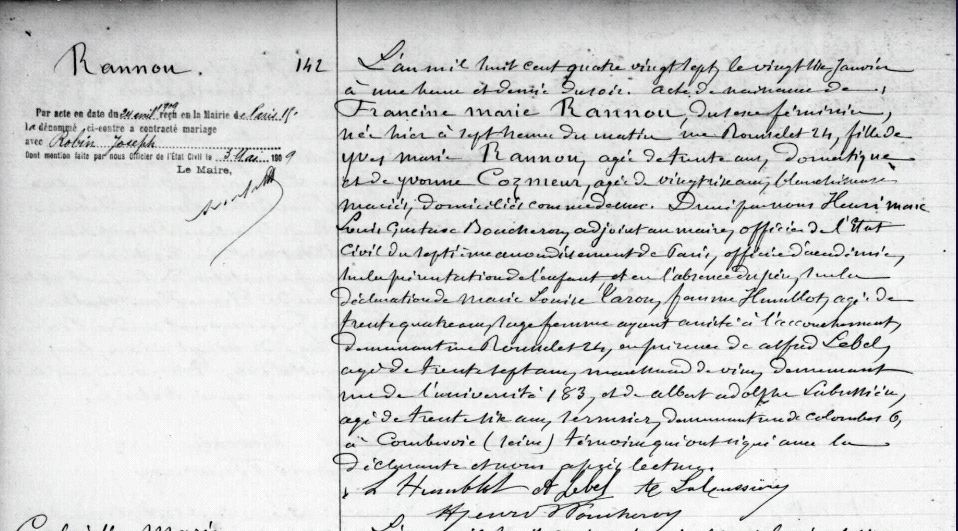 Rannou.
142
Par acte en date du 24 avril 1909 reçu en la Mairie de Paris 15e
Le dénommé ci-contre a contracté mariage
avec Robin Joseph
Dont mention faite par nous Officier de l'État Civil le 3 Mai 1909
Le Maire,
L'an mil huit cent quatre vingt sept, le vingt six Janvier
à une heure et demie du soir. acte de naissance de
Francine marie Rannou, du sexe féminin,
née hier à sept heures du matin rue Rousselet 24, fille de
yves marie Rannou, agé de trente ans, domestique
et de yvonne Cozmeur, agée de vingt six ans, blanchisseuse
mariés, domiciliés comme dessus. Dressé par nous Henri marie
Louis Gustave Boucheron, adjoint au maire, officier de l'État
Civil du septième arrondissement de Paris, officier d'académie,
sur la présentation de l'enfant, et en l'absence du père, sur la
déclaration de marie Louise femme Humblot, agée de
trente quatre ans, sage femme ayant assisté à l'accouchement,
demeurant rue Rousselet 24, en présence de alfred Lebel,
agé de trente sept ans, marchand de vins, demeurant
rue de l'université 183, et de albert adolphe Labussière,
agé de trente six ans, demeurant rue de colombes 6,
à Courbevoie (seine) témoins qui ont signé avec la
déclarante et nous après lecture.
L Humblot A Lebel Labussière
Henri Boucheron